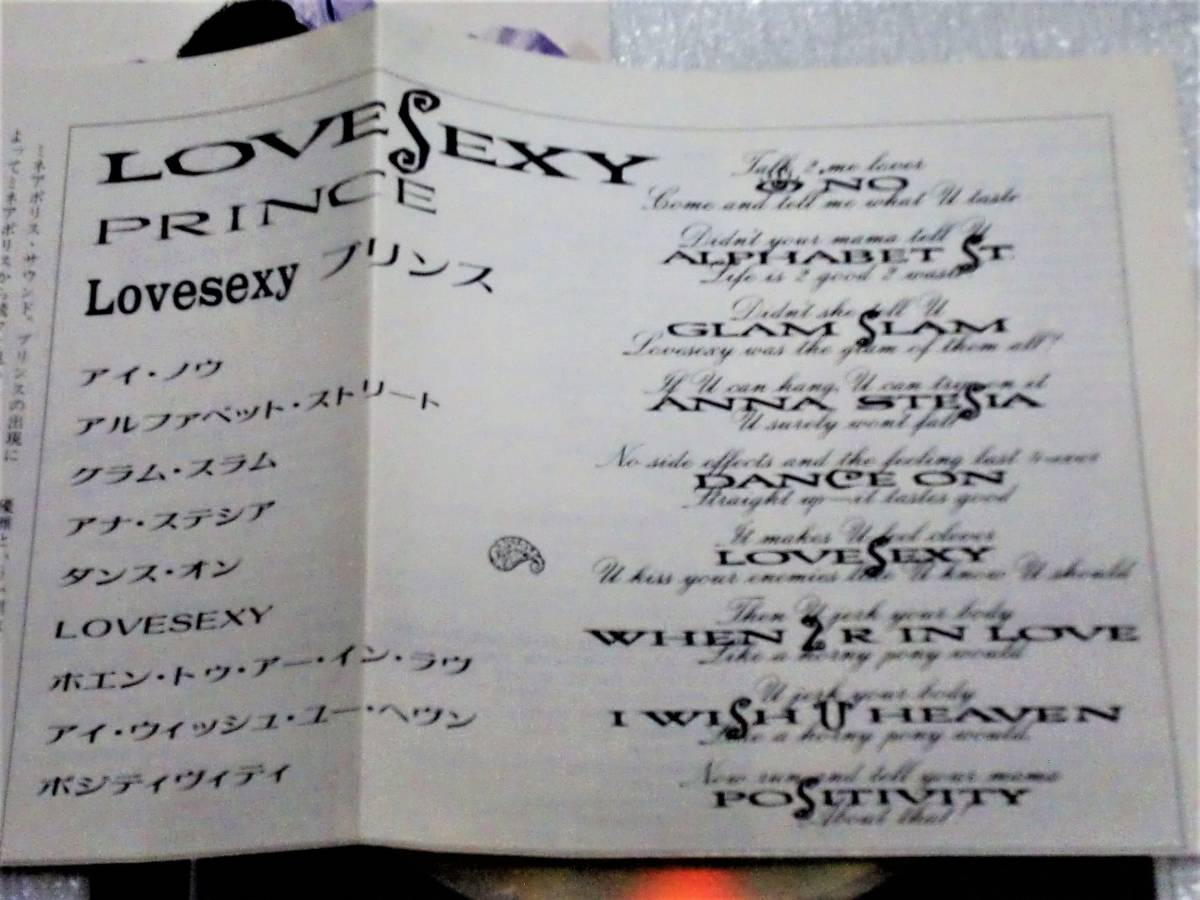 LOVESEXY
PRINCE
Lovesexy プリンス
アイ・ノウ
アルファベット・ストリート
グラム・スラム
アナ・ステシア
ダンス・オン
LOVESEXY
ホエン・トゥ・アー・イン・ラヴ
アイ・ウィッシュ・ユー・ヘヴン
ポジティヴィティ
Talk 2 me lover
NO
Come and tell me what U taste
Didn't your mama tell U
ALPHABET ST.
Life is 2 good 2 waste
Didn't she tell U
GLAM SLAM
Lovesexy was the glam of them all?
If U can hang, U can trip on it
ANNA STESIA
U surely won't fall
No side effects and the feeling last 4-ever
DANCE ON
Straight up—it tastes good
It makes U feel clever
LOVESEXY
U kiss your enemies like U know U should
Then U jerk your body
WHEN 2 R IN LOVE
Like a horny pony would
U jerk your body
I WISH U HEAVEN
Like a horny pony would
Now run and tell your mama
POSITIVITY
About that
ミネアポリス・サウンド。プリンスの出現に
よってミネアポリスから